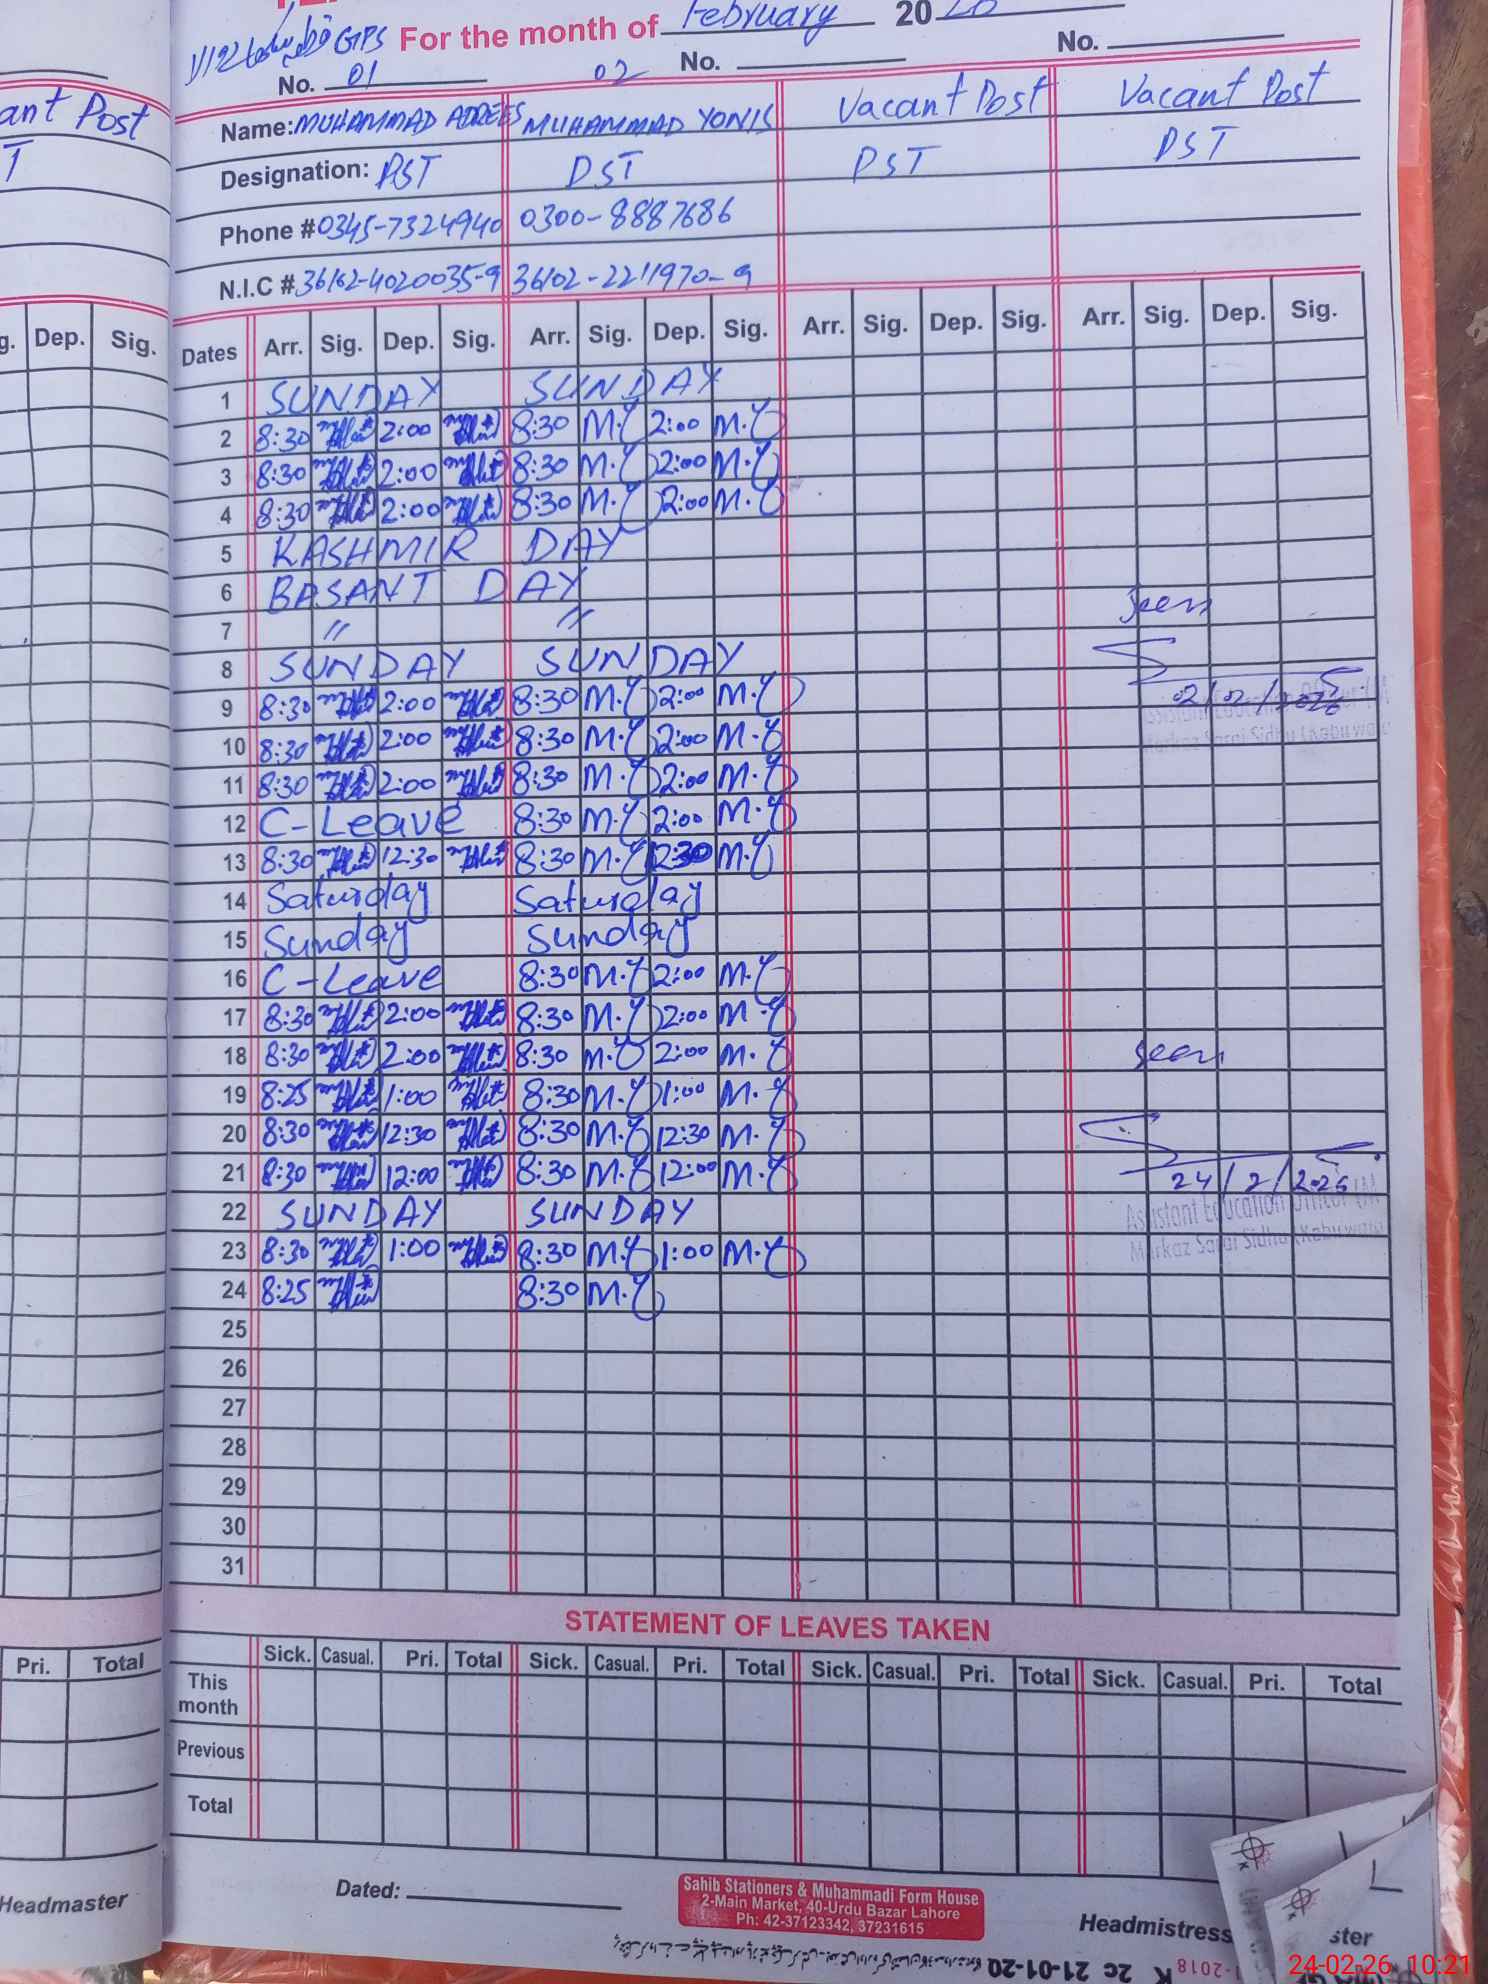 GPS For the month of February 20
No. 01 02 No. No.
ant Post Name: MUHAMMAD ADREES MUHAMMAD YONIS Vacant Post Vacant Post
T Designation: PST PST PST PST
Phone # 0345-7324940 0300-8887686
N.I.C # 36102-4020035-9 36102-2211970-9
g. Dep. Sig. Dates Arr. Sig. Dep. Sig. Arr. Sig. Dep. Sig. Arr. Sig. Dep. Sig. Arr. Sig. Dep. Sig.
1 SUNDAY SUNDAY
2 8:30 2:00 8:30 M.Y 2:00 M.Y
3 8:30 2:00 8:30 M.Y 2:00 M.Y
4 8:30 2:00 8:30 M.Y 2:00 M.Y
5 KASHMIR DAY
6 BASANT DAY
Seen
7 〃 〃
8 SUNDAY SUNDAY
9 8:30 2:00 8:30 M.Y 2:00 M.Y
Assistant Education Officer (M
10 8:30 2:00 8:30 M.Y 2:00 M.Y
Markaz Sarai Sidhu (Kabirwala
11 8:30 2:00 8:30 M.Y 2:00 M.Y
12 C-Leave 8:30 M.Y 2:00 M.Y
13 8:30 12:30 8:30 M.Y 12:30 M.Y
14 Saturday Saturday
15 Sunday Sunday
16 C-Leave 8:30 M.Y 2:00 M.Y
17 8:30 2:00 8:30 M.Y 2:00 M.Y
18 8:30 2:00 8:30 M.Y 2:00 M.Y Seen
19 8:25 1:00 8:30 M.Y 1:00 M.Y
20 8:30 12:30 8:30 M.Y 12:30 M.Y
21 8:30 12:00 8:30 M.Y 12:00 M.Y 24/2/2026
22 SUNDAY SUNDAY Assistant Education Officer (M
23 8:30 1:00 8:30 M.Y 1:00 M.Y Markaz Sarai Sidhu (Kabirwala
24 8:25 8:30 M.Y
25
26
27
28
29
30
31
STATEMENT OF LEAVES TAKEN
Pri. Total Sick. Casual. Pri. Total Sick. Casual. Pri. Total Sick. Casual. Pri. Total Sick. Casual. Pri. Total
This month
Previous
Total
Headmaster Dated: Sahib Stationers & Muhammadi Form House
2-Main Market, 40-Urdu Bazar Lahore
Ph: 42-37123342, 37231615
Headmistress ster
K 2c 21-01-20
24-02-26 10:21